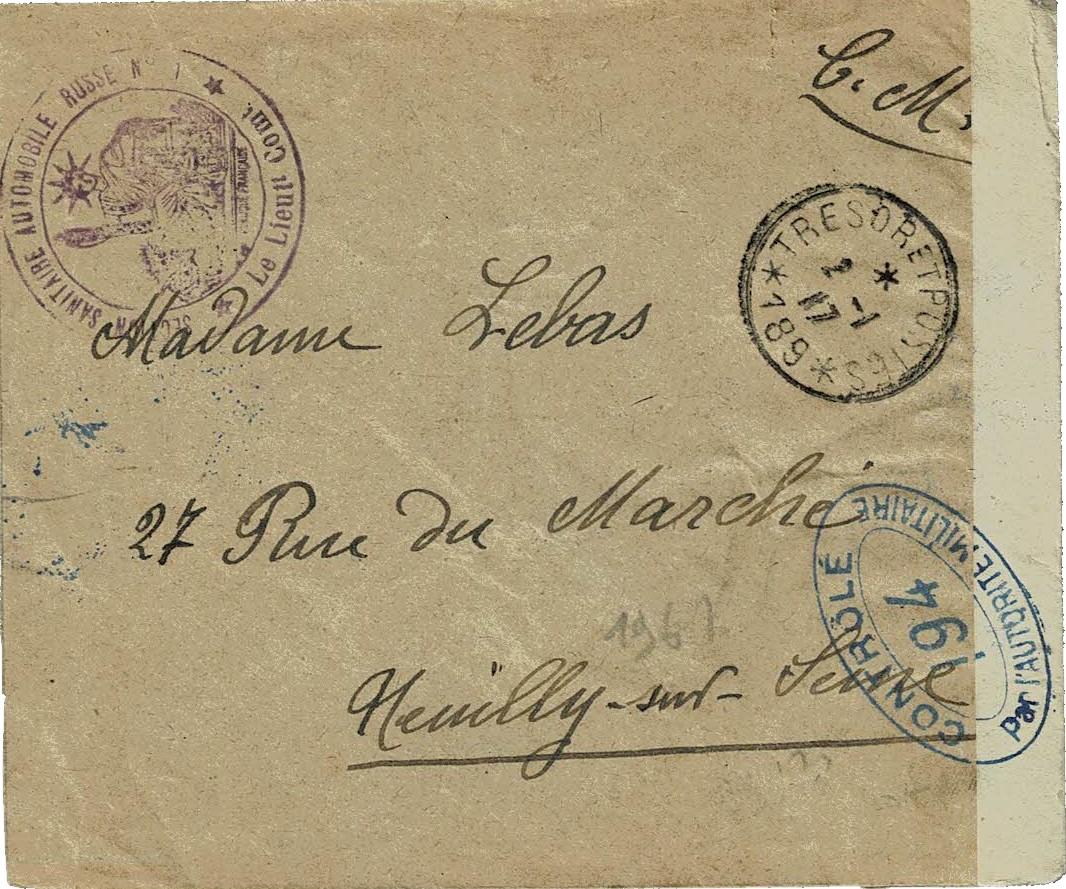 SECTION SANITAIRE AUTOMOBILE RUSSE N° 1
Le Lieut Comt.
C. M.
TRESOR ET POSTES
* 189 *
2 - 1
17
Madame Lebas
27 Rue du Marché
1967
Neuilly-sur-Seine
CONTRÔLÉ
194
Par l'AUTORITÉ MILITAIRE